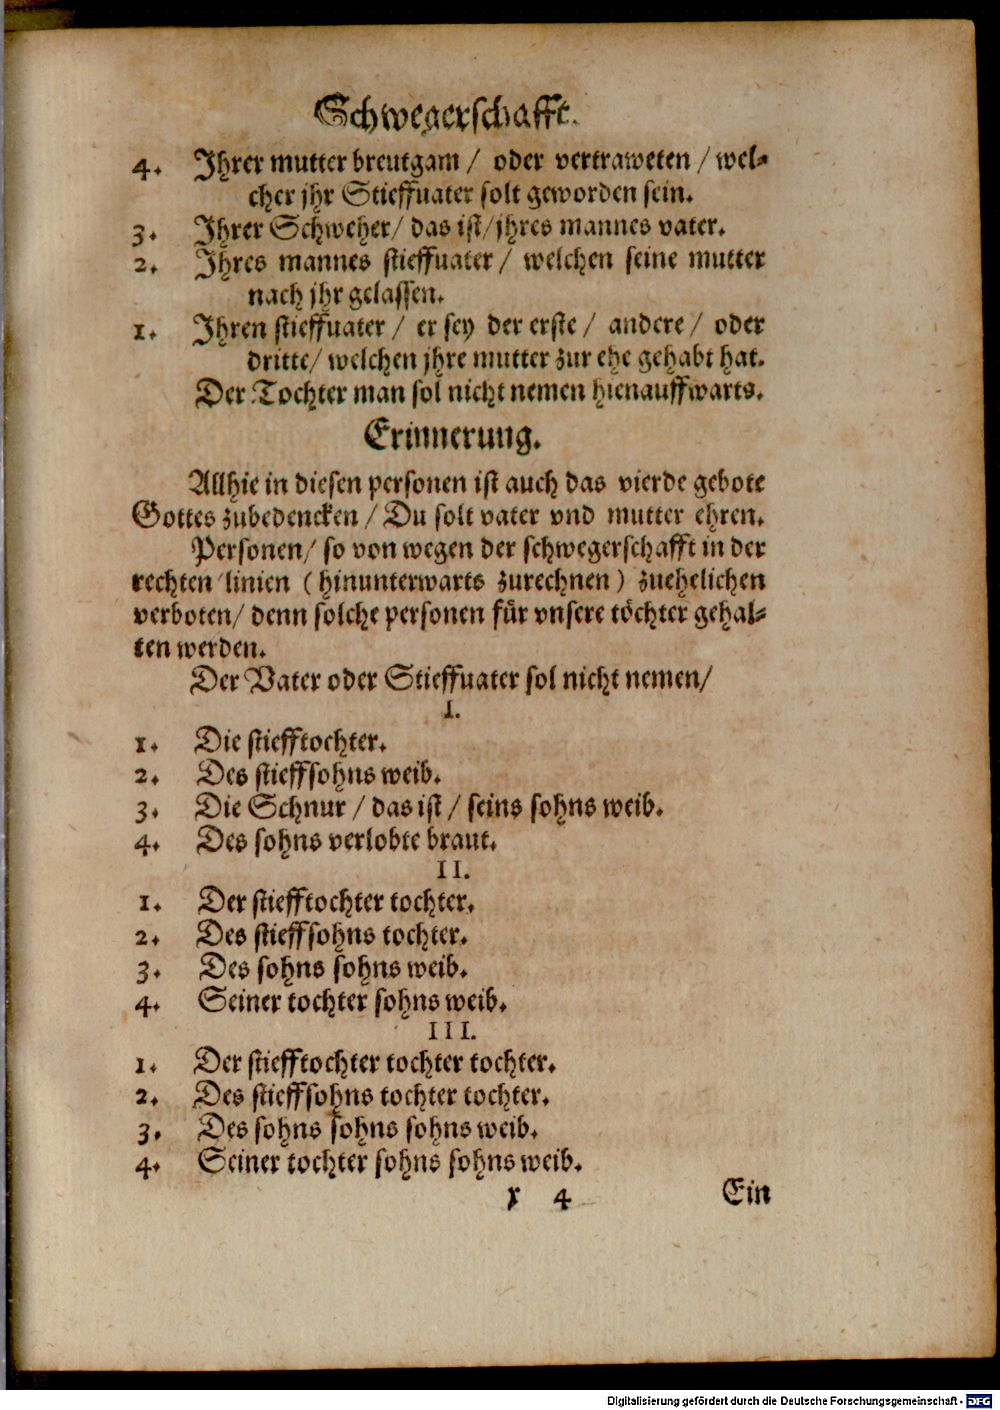 Schwegerschafft.
4. Ihrer mutter breutgam / oder vertraweten / wel-
cher jhr Stieffuater solt geworden sein.
3. Ihrer Schweher / das ist / jhres mannes vater.
2. Ihres mannes stieffuater / welchen seine mutter
nach jhr gelassen.
1. Ihren stieffuater / er sey der erste / andere / oder
dritte / welchen jhre mutter zur ehe gehabt hat.
Der Tochter man sol nicht nemen hienauffwarts.
Erinnerung.
Allhie in diesen personen ist auch das vierde gebote
Gottes zubedencken / Du solt vater vnd mutter ehren.
Personen / so von wegen der schwegerschafft in der
rechten linien ( hinunterwarts zurechnen ) zuehelichen
verboten / denn solche personen für vnsere töchter gehal-
ten werden.
Der Vater oder Stieffuater sol nicht nemen /
I.
1. Die stiefftochter.
2. Des stieffsohns weib.
3. Die Schnur / das ist / seins sohns weib.
4. Des sohns verlobte braut.
II.
1. Der stiefftochter tochter.
2. Des stieffsohns tochter.
3. Des sohns sohns weib.
4. Seiner tochter sohns weib.
III.
1. Der stiefftochter tochter tochter.
2. Des stieffsohns tochter tochter.
3. Des sohns sohns sohns weib.
4. Seiner tochter sohns sohns weib.
x 4 Ein
Digitalisierung gefördert durch die Deutsche Forschungsgemeinschaft - DFG